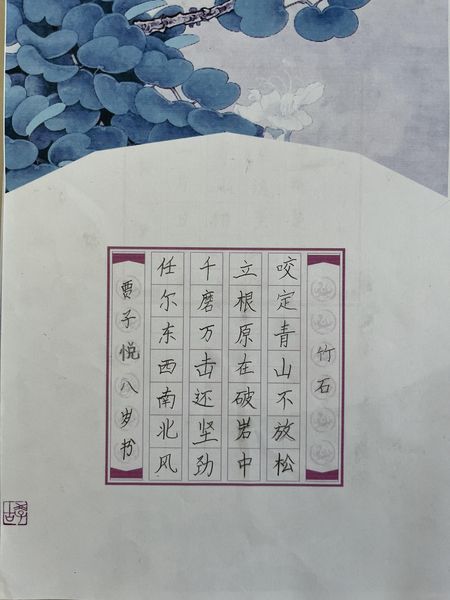 竹石
咬定青山不放松
立根原在破岩中
千磨万击还坚劲
任尔东西南北风
贾子悦八岁书